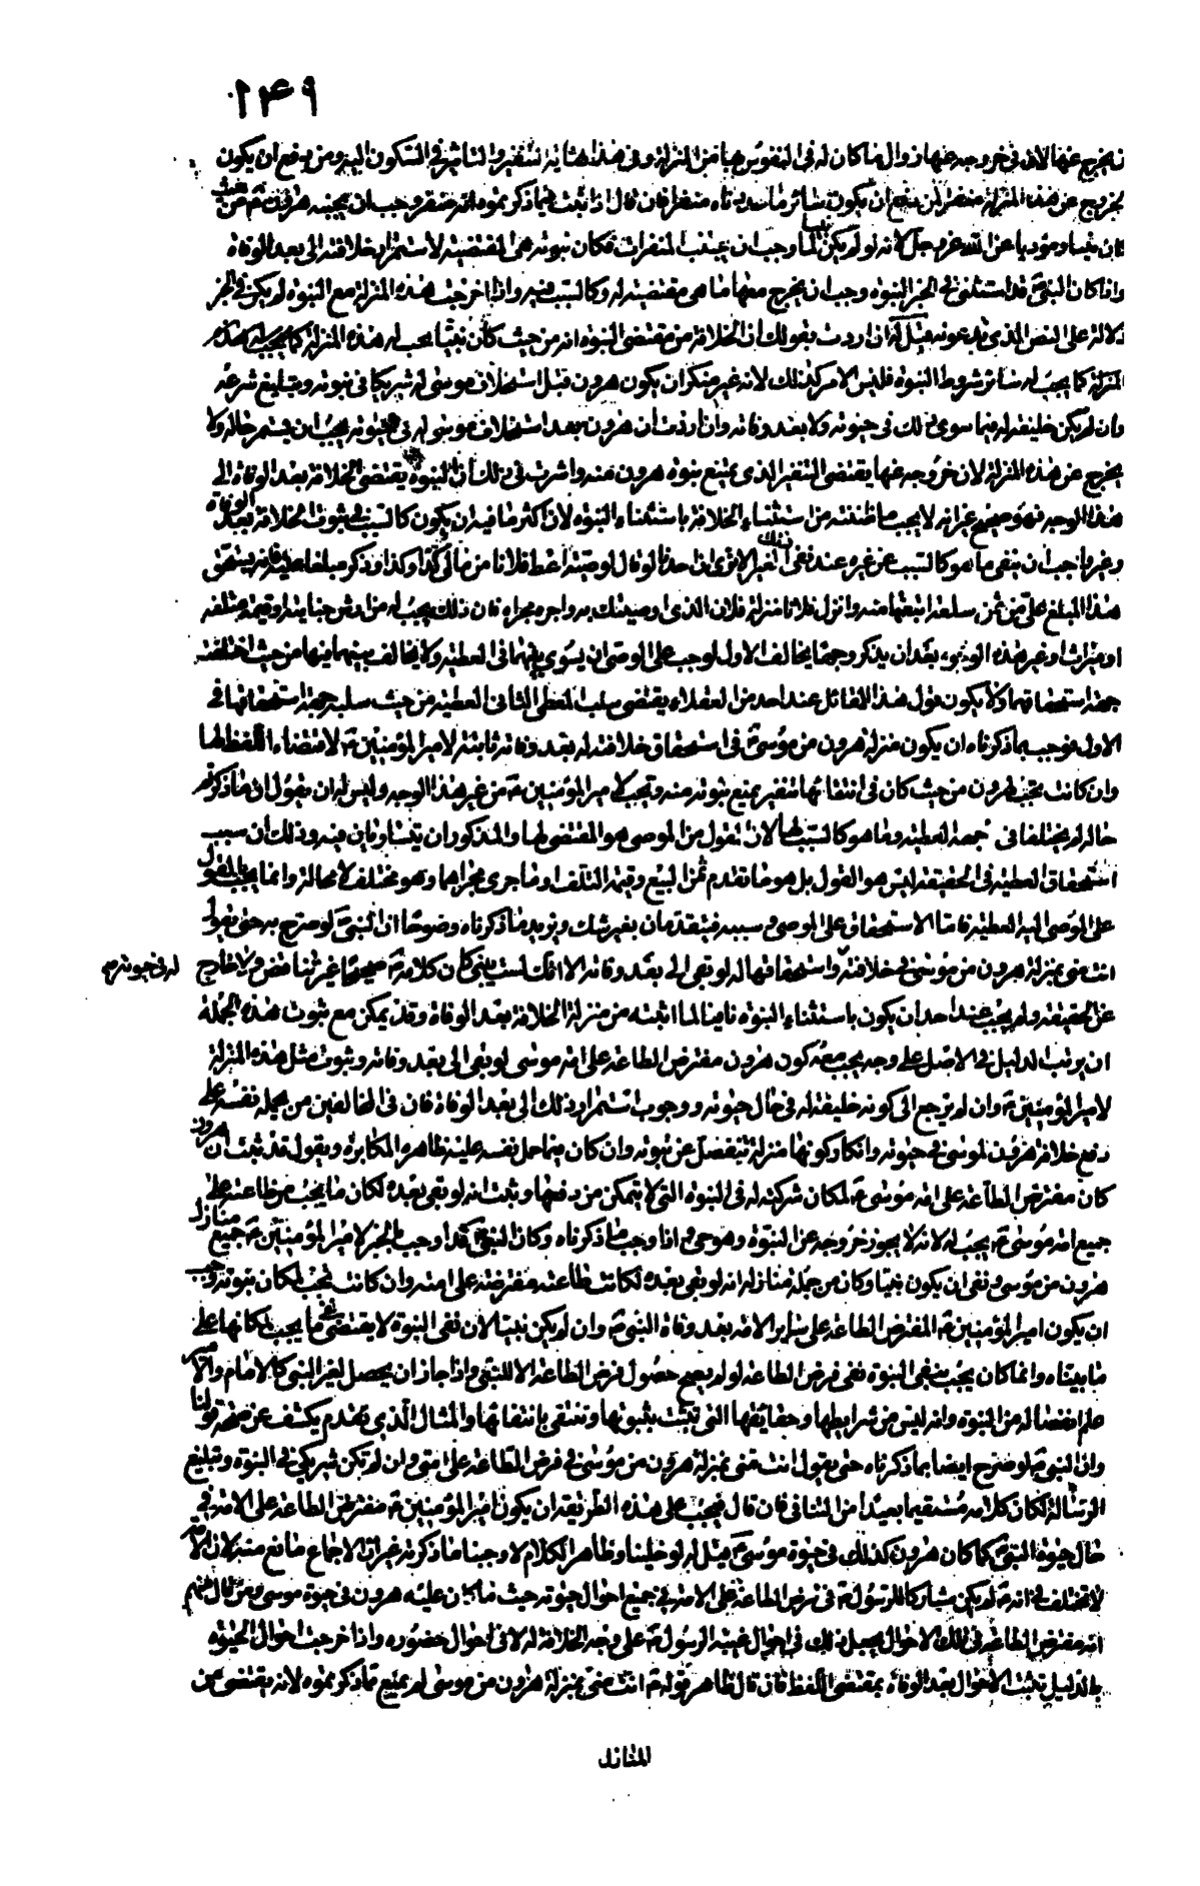 ١٤٩
يخرج عنها لان في خروجه عنها زوال ما كان له في النفوس بها من المنزلة وفي هذا نهاية التنفير والتاثير في السكون اليه ومن يدفع ان يكون
الخروج عن هذه المنزلة منفرا كمن يدفع ان يكون سائر ما عددناه منفرا فان قال اذا ثبت فيما ذكرتموه انه منفر وجب ان يجنبه هرون ع من حيث
كان نبيا ومؤديا عن الله عز وجل لانه لو لم يكن نبيا لما وجب ان يجنب المنفرات فكان نبوته هي المقتضية لاستمرار خلافته الى بعد الوفاة
واذا كان النبي ص قد استثنى في الخبر النبوة وجب ان يخرج معها ما هي مقتضية له وكالسبب فيه واذا خرجت هذه المنزلة مع النبوة لم يكن في الخبر
دلالة على النص الذي تدعونه قيل له ان اردت بقولك ان الخلافة من مقتضى النبوة انه من حيث كان نبيا يجب له هذه المنزلة كما يجب له هذه
المنزلة كما يجب له سائر شروط النبوة فليس الامر كذلك لانه غير منكر ان يكون هرون قبل استخلاف موسى له شريكا في نبوته وتبليغ شرعه
وان لم يكن خليفة له فيما سوى ذلك في حيوته ولا بعد وفاته وان اردت ان هرون بعد استخلاف موسى له في حيوته يجب ان يستمر حاله ولا
يخرج عن هذه المنزلة لان خروجه عنها يقتضي التنفير الذي يمنع نبوة هرون منه واشرت في ذلك ان النبوة يقتضي الخلافة بعد الوفاة الى
هذا الوجه فهو صحيح غير انه لا يجب ما ظننته من استثناء الخلافة باستثناء النبوة لان اكثر ما فيه ان يكون كالسبب في ثبوت الخلافة بعد الوفاة
وغير واجب ان ينفى ما هو كالسبب عن غيره عند نفى الغير الا ترى ان احدنا لو قال لوصيه اعط فلانا من مالي كذا وكذا وذكر مبلغا عينه فانه يستحق
هذا المبلغ علي من ثمن سلعة ابتعتها منه وانزل فلانا منزلة فلان الذي اوصيتك به واجره مجراه فان ذلك يجب له من ارش جناية او قيمة متلفه
او ميراث او غير هذه الوجوه بعد ان يذكر وجها يخالف الاول لوجب على الوصي ان يسوي بينهما في العطية ولا يخالف بينهما فيها من حيث اختلفت
جهة استحقاقهما ولا يكون قول هذا القائل عند احد من العقلاء يقتضي سلب المعطى الثاني العطية من حيث سلبه جهة استحقاقها في
الاول فوجب بما ذكرناه ان يكون منزلة هرون من موسى ع في استحقاق خلافته له بعد وفاته ثابتة لامير المؤمنين ع لاقتضاء اللفظ لها
وان كانت تجب لهرون من حيث كان في انتفائها تنفير يمنع نبوته منه وتجب لامير المؤمنين ع من غير هذا الوجه وليس له ان يقول ان ما ذكرتم
حاله لم يختلفا في جهة العطية وما هو كالسبب لها لان القول من الموصي هو المقتضي لها والمذكوران يتساويان فيه وذلك ان سبب
استحقاق العطية في الحقيقة ليس هو القول بل هو ما تقدم ثمن المبيع وقيمة التلف او ما جرى مجراهما وهو مختلف لا محالة وانما يجب بالقول
على الوصي اليه العطية فاما الاستحقاق على الموصي وسببه فيتقدمان بغير شك ويزيد ما ذكرناه وضوحا ان النبي ص لو صرح به حتى يقول
انت مني بمنزلة هرون من موسى في خلافته واستحقاقها له لو بقي الى بعد وفاته الا انك لست بنبي كان كلامه ص صحيحا غير متناقض ولا خارج
له في حيوته صح
عن الحقيقة ولم يجب عند احد ان يكون باستثناء النبوة نافيا لما اثبته من منزلة الخلافة بعد الوفاة وقد يمكن مع ثبوت هذه الجملة
ان يرتب الدليل في الاصل على وجه يجب معه كون هرون مفترض الطاعة على امة موسى لو بقي الى بعد وفاته وثبوت مثل هذه المنزلة
لامير المؤمنين ع وان لم يرجع الى كونه خليفة له في حال حيوته ووجوب استمرار ذلك الى بعد الوفاة فان في المخالفين من يحمل نفسه على
دفع خلافة هرون لموسى في حيوته وانكار كونها منزلة تنفصل عن نبوته وان كان فيما حمل نفسه عليه ظاهره المكابرة ويقول قد ثبت ان هرون
كان مفترض الطاعة على امة موسى ع لمكان شركته له في النبوة التي لا يتمكن من دفعها وثبت انه لو بقي بعده لكان ما يجب من طاعته على
جميع امة موسى ع يجب له لانه لا يجوز خروجه عن النبوة وهو حي واذا وجب ما ذكرناه وكان النبي ص قد اوجب بالخبر لامير المؤمنين ع جميع منازل
هرون من موسى ونفى ان يكون نبيا وكان من جملة منازله انه لو بقي بعده لكانت طاعته مفترضة على امته وان كانت تجب لمكان نبوته وجب
ان يكون امير المؤمنين ع المفترض الطاعة على سائر الامة بعد وفاة النبي ص وان لم يكن نبيا لان نفى النبوة لا يقتضي نفى ما يجب لمكانها على
ما بيناه وانما كان يجب بنفي النبوة نفى فرض الطاعة لو لم يصح حصول فرض الطاعة الا للنبي واذا جاز ان يحصل لغير النبي كالامام والامير
علم انفصاله من النبوة وانه ليس من شرايطها وحقايقها التي تثبت بثبوتها وتنتفي بانتفائها والمثال الذي تقدم يكشف عن صحة قولنا
وان النبي ص لو صرح ايضا بما ذكرناه حتى يقول انت مني بمنزلة هرون من موسى في فرض الطاعة على امتي وان لم تكن شريكي في النبوة وتبليغ
الرسالة لكان كلامه مستقيما بعيدا من التنافي فان قال فيجب على هذه الطريقة ان يكون امير المؤمنين ع مفترض الطاعة على الامة في
حال حيوة النبي ص كما كان هرون كذلك في حيوة موسى ع قيل له لو خلينا وظاهر الكلام لاوجبنا ما ذكرته غير ان الاجماع مانع منه لان الامة
لا تختلف في انه ع لم يكن مشاركا للرسول ص في فرض الطاعة على الامة في جميع احوال حيوته حيث ما كان عليه هرون في حيوة موسى ومن قال منهم
انه مفترض الطاعة في تلك الاحوال يجعل ذلك في احوال غيبة الرسول ص على وجه الخلافة له لا في احوال حضوره واذا خرجت احوال الحيوة
بالدليل ثبتت الاحوال بعد الوفاة بمقتضى اللفظ فان قال ظاهر قوله ص انت مني بمنزلة هرون من موسى لم يمنع مما ذكرتموه لانه يقتضي من
المنازل